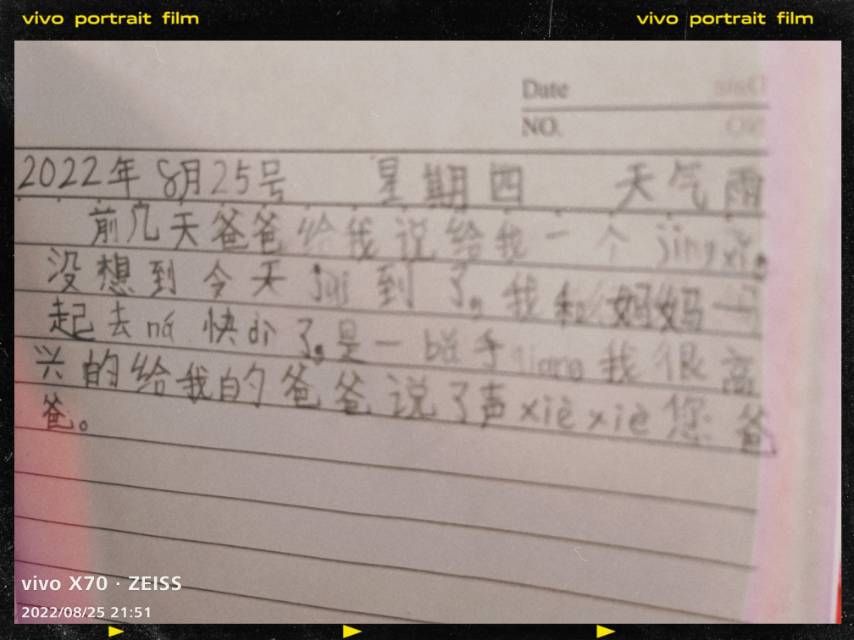 vivo portrait film vivo portrait film
Date
NO.
2022年 8月25号 星期四 天气雨
前几天爸爸给我说给我一个 jing xǐ。
没想到今天 jiù 到了。我和妈妈一
起去 ná 快 dì 了。是一 手 我很高
兴的给我的爸爸说了声 xiè xiè 您爸
爸。
vivo X70 · ZEISS
2022/08/25 21:51